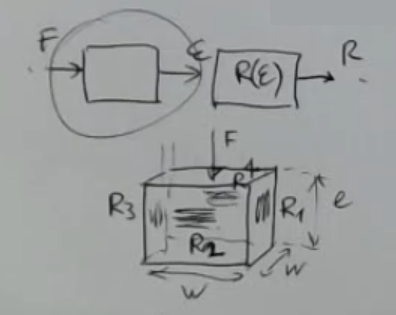 F ε R(ε) R
F
R4
R3 R1 e
R2
W W